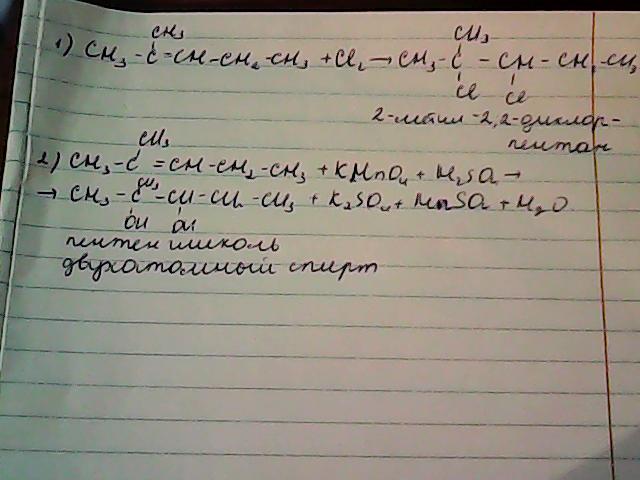 CH3
1) CH3 - C = CH - CH2 - CH3 + Cl2 → CH3 - C - CH - CH2 - CH3
CH3
Cl Cl
2-метил-2,2-дихлор-
пентан
CH3
2) CH3 - C = CH - CH2 - CH3 + KMnO4 + H2SO4 →
→ CH3 - C - CH - CH2 - CH3 + K2SO4 + MnSO4 + H2O
CH3
OH OH
пентен гликоль
двухатомный спирт